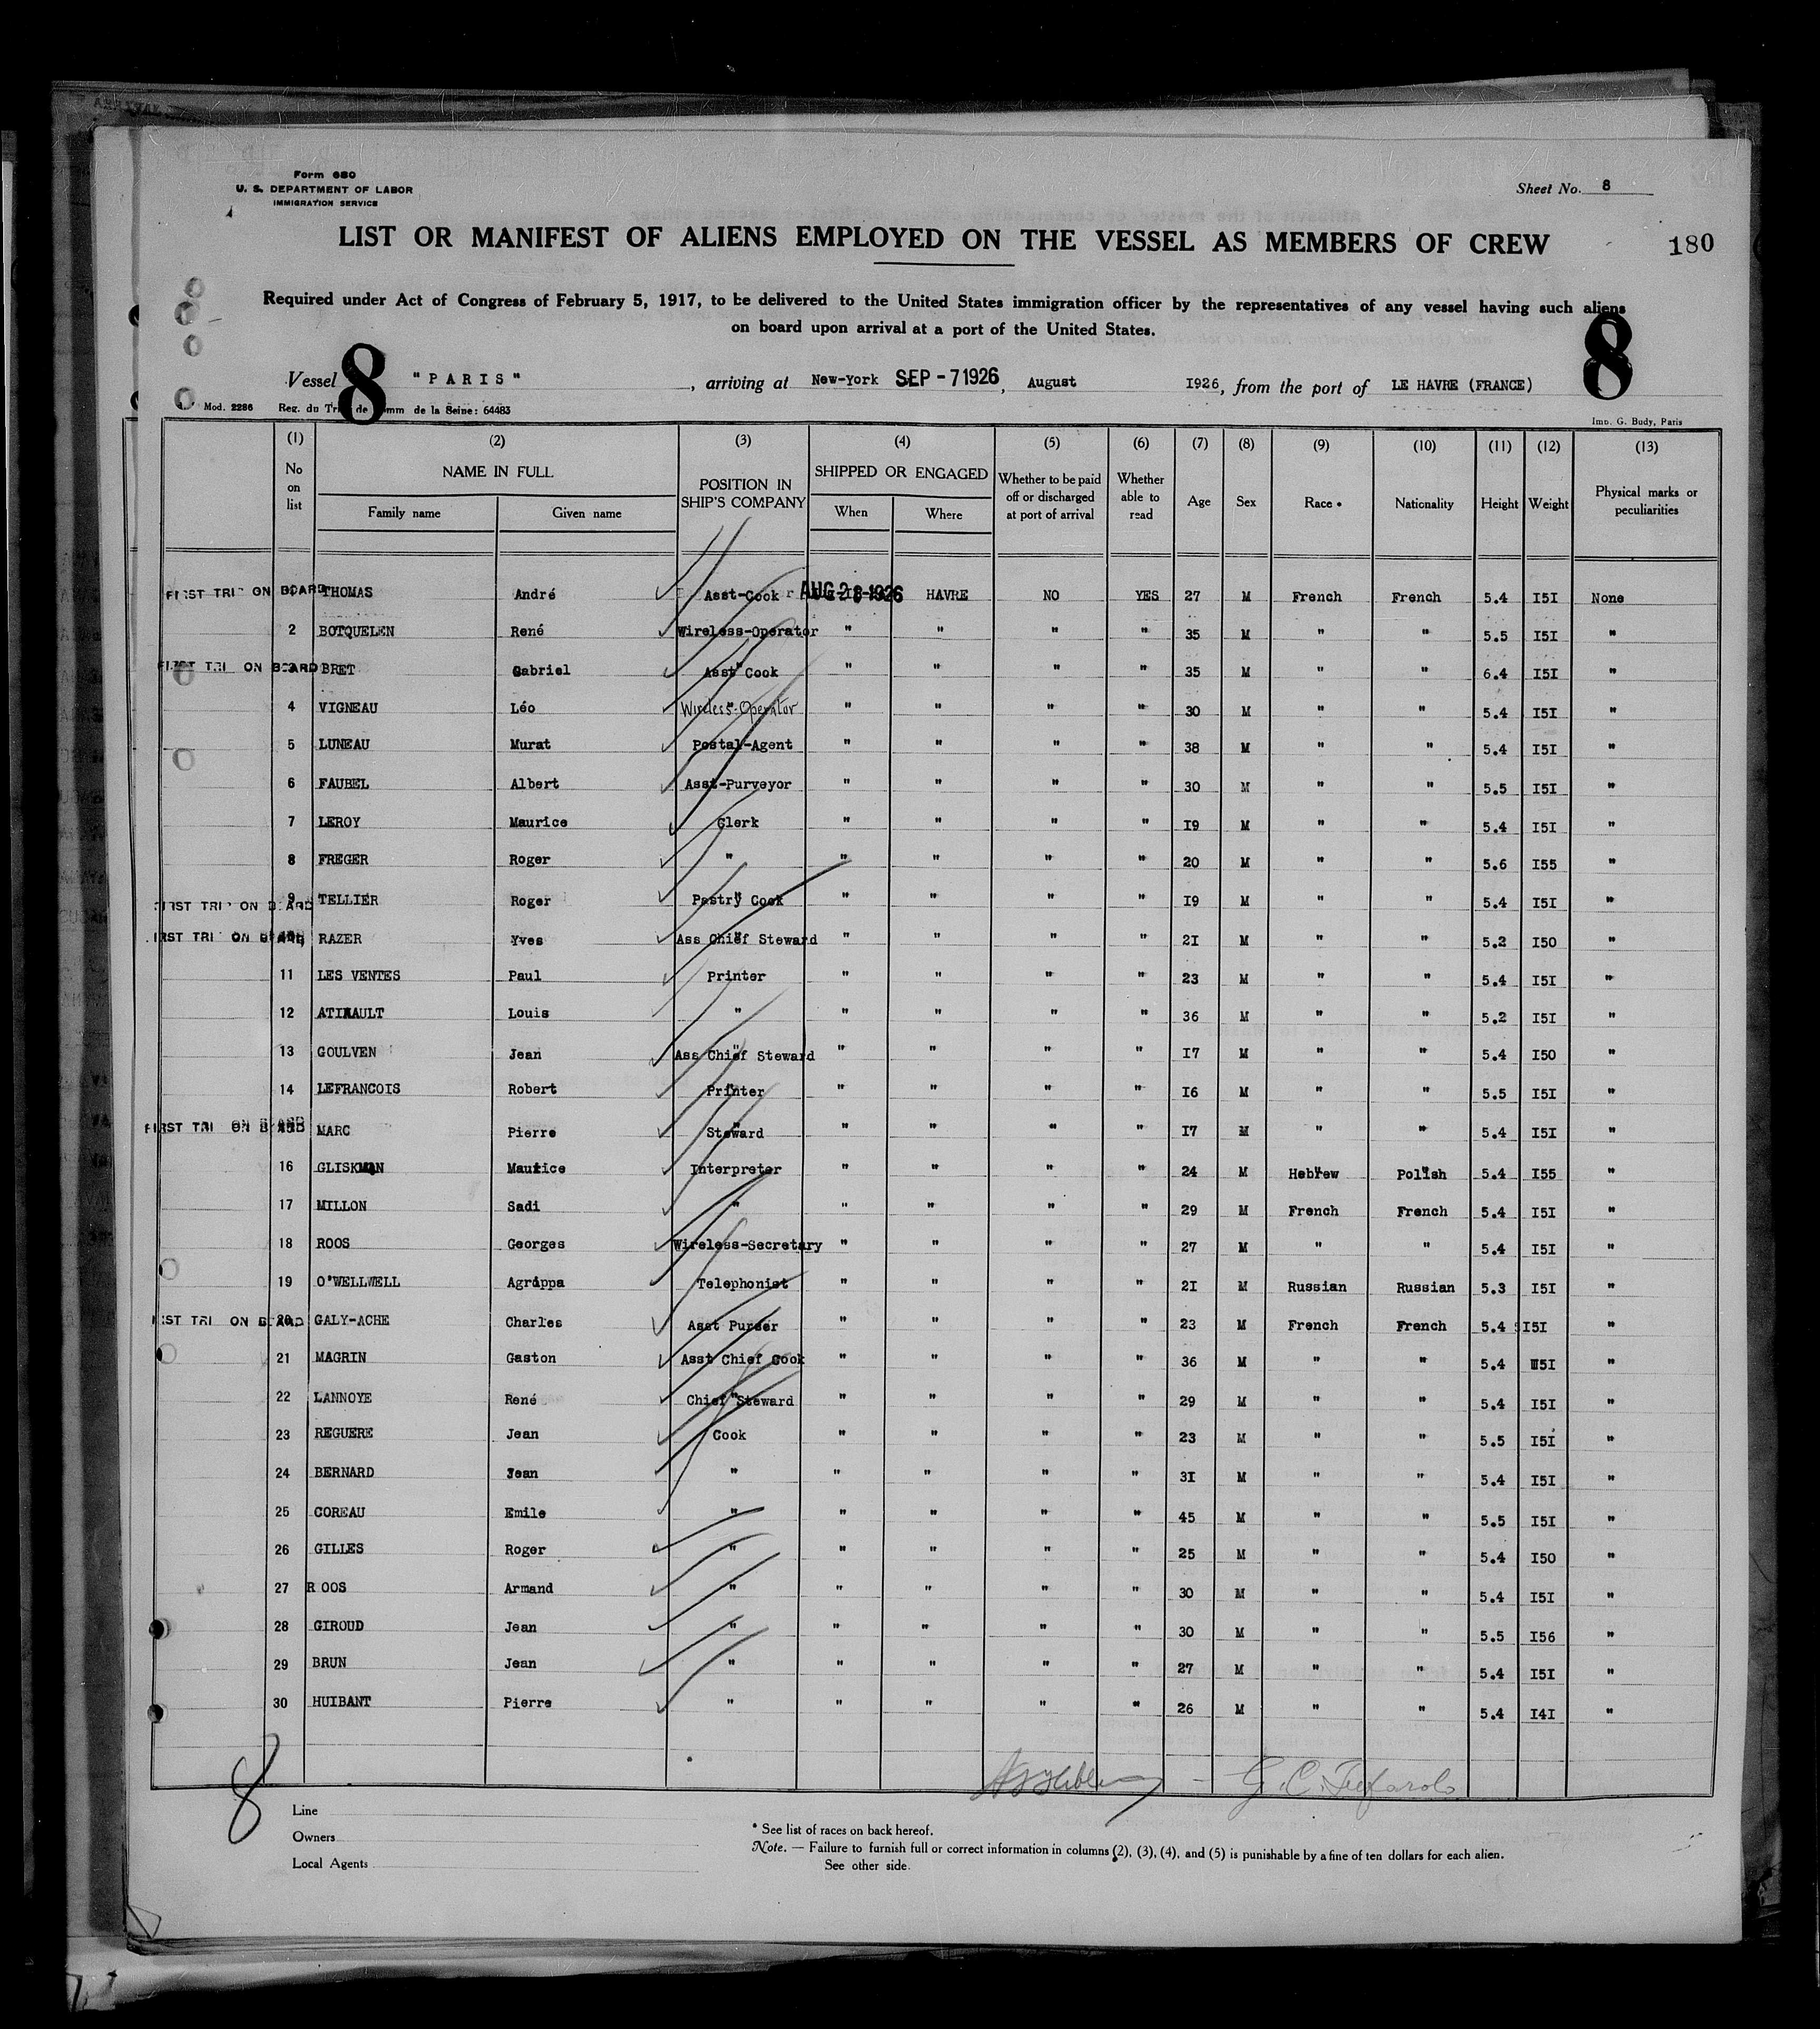 Form 680
U. S. DEPARTMENT OF LABOR
IMMIGRATION SERVICE
Sheet No. 8
LIST OR MANIFEST OF ALIENS EMPLOYED ON THE VESSEL AS MEMBERS OF CREW
180
Required under Act of Congress of February 5, 1917, to be delivered to the United States immigration officer by the representatives of any vessel having such aliens
on board upon arrival at a port of the United States.
8 8
Vessel "PARIS", arriving at New-York SEP -7 1926, August 1926, from the port of LE HAVRE (FRANCE)
Mod. 2286 Reg. du Trib. de Comm de la Seine: 64483
Imp. G. Budy, Paris
(1) (2) (3) (4) (5) (6) (7) (8) (9) (10) (11) (12) (13)
No on list NAME IN FULL Family name Given name POSITION IN SHIP'S COMPANY SHIPPED OR ENGAGED When Where Whether to be paid off or discharged at port of arrival Whether able to read Age Sex Race * Nationality Height Weight Physical marks or peculiarities
FIRST TRIP ON BOARD THOMAS André Asst-Cook AUG 28 1926 HAVRE NO YES 27 M French French 5.4 I5I None
2 BOTQUELEN René Wireless-Operator " " " " 35 M " " 5.5 I5I "
FIRST TRIP ON BOARD 3 BRET Gabriel Asst Cook " " " " 35 M " " 6.4 I5I "
4 VIGNEAU Léo Wireless-Operator " " " " 30 M " " 5.4 I5I "
5 LUNEAU Murat Postal-Agent " " " " 38 M " " 5.4 I5I "
6 FAUBEL Albert Asst-Purveyor " " " " 30 M " " 5.5 I5I "
7 LEROY Maurice Clerk " " " " I9 M " " 5.4 I5I "
8 FREGER Roger " " " " " 20 M " " 5.6 I55 "
FIRST TRIP ON BOARD 9 TELLIER Roger Pastry Cook " " " " I9 M " " 5.4 I5I "
FIRST TRIP ON BOARD RAZER Yves Ass Chief Steward " " " " 2I M " " 5.2 I50 "
11 LES VENTES Paul Printer " " " " 23 M " " 5.4 I5I "
12 ATINAULT Louis " " " " " 36 M " " 5.2 I5I "
13 GOULVEN Jean Ass Chief Steward " " " " I7 M " " 5.4 I50 "
14 LEFRANCOIS Robert Printer " " " " I6 M " " 5.5 I5I "
FIRST TRIP ON BOARD MARC Pierre Steward " " " " I7 M " " 5.4 I5I "
16 GLISKMAN Maurice Interpreter " " " " 24 M Hebrew Polish 5.4 I55 "
17 MILLON Sadi " " " " " 29 M French French 5.4 I5I "
18 ROOS Georges Wireless-Secretary " " " " 27 M " " 5.4 I5I "
19 O'WELLWELL Agrippa Telephonist " " " " 2I M Russian Russian 5.3 I5I "
FIRST TRIP ON BOARD 20 GALY-ACHE Charles Asst Purser " " " " 23 M French French 5.4 I5I "
21 MAGRIN Gaston Asst Chief Cook " " " " 36 M " " 5.4 I5I "
22 LANNOYE René Chief Steward " " " " 29 M " " 5.4 I5I "
23 REGUERE Jean Cook " " " " 23 M " " 5.5 I5I "
24 BERNARD Jean " " " " " 3I M " " 5.4 I5I "
25 COREAU Emile " " " " " 45 M " " 5.5 I5I "
26 GILLES Roger " " " " " 25 M " " 5.4 I50 "
27 ROOS Armand " " " " " 30 M " " 5.4 I5I "
28 GIROUD Jean " " " " " 30 M " " 5.5 I56 "
29 BRUN Jean " " " " " 27 M " " 5.4 I5I "
30 HUIBANT Pierre " " " " " 26 M " " 5.4 I4I "
8
Line
Owners
Local Agents
* See list of races on back hereof.
Note. — Failure to furnish full or correct information in columns (2), (3), (4), and (5) is punishable by a fine of ten dollars for each alien.
See other side.